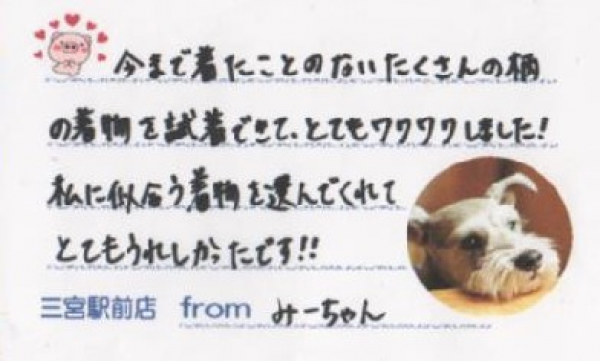 今まで着たことのないたくさんの柄
の着物を試着できて、とてもワクワクしました!
私に似合う着物を選んでくれて
とてもうれしかったです!!
三宮駅前店 from みーちゃん